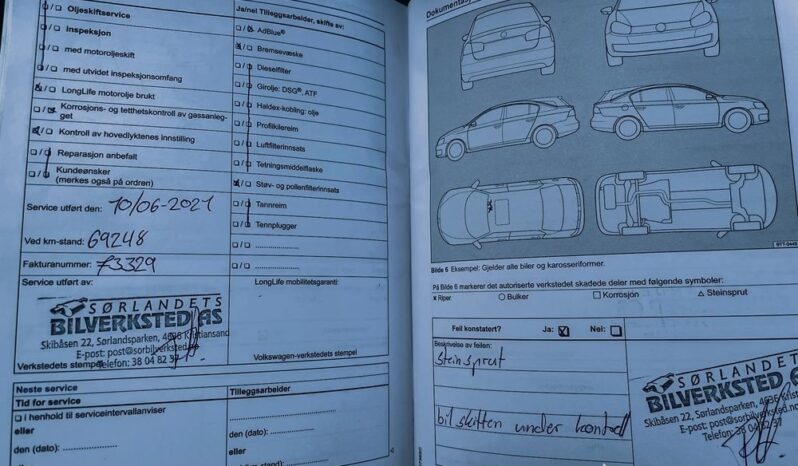 ☐/☐ Oljeskiftservice
☐/☐ Inspeksjon
☐/☐ med motoroljeskift
☐/☐ med utvidet inspeksjonsomfang
☒/☐ LongLife motorolje brukt
☐/☒ Korrosjons- og tetthetskontroll av gassanleg-
get
☒/☐ Kontroll av hovedlyktenes innstilling
☐/☐ Reparasjon anbefalt
☐/☐ Kundeønsker
(merkes også på ordren)
Service utført den: 10/06-2021
Ved km-stand: 69248
Fakturanummer: 73329
Service utført av:
SØRLANDETS
BILVERKSTED AS
Skibåsen 22, Sørlandsparken, 4636 Kristiansand
E-post: post@sorbilverksted
Telefon: 38 04 82 37
Verkstedets stempel
Ja/nei Tilleggsarbeider, skifte av:
☐/☒ AdBlue®
☒/☐ Bremsevæske
☐/☐ Dieselfilter
☐/☐ Girolje: DSG®, ATF
☐/☐ Haldex-kobling: olje
☐/☐ Profilkilereim
☐/☐ Luftfilterinnsats
☐/☐ Tetningsmiddelflaske
☒/☐ Støv- og pollenfilterinnsats
☐/☐ Tannreim
☐/☐ Tennplugger
☐/☐
☐/☐
LongLife mobilitetsgaranti:
Volkswagen-verkstedets stempel
Neste service
Tid for service
☐ i henhold til serviceintervallanviser
eller
den (dato):
eller
Tilleggsarbeider:
den (dato):
eller
Bilde 6 Eksempel: Gjelder alle biler og karosseriformer.
På Bilde 6 markerer det autoriserte verkstedet skadede deler med følgende symboler:
x Riper ○ Bulker □ Korrosjon △ Steinsprut
Feil konstatert? Ja: ☒ Nei: ☐
Beskrivelse av feilen:
Steinsprut
bilskitten under kontroll
SØRLANDETS
BILVERKSTED
Skibåsen 22, Sørlandsparken, 4636
E-post: post@sorbilverksted.no
Telefon: 38 04 82 37